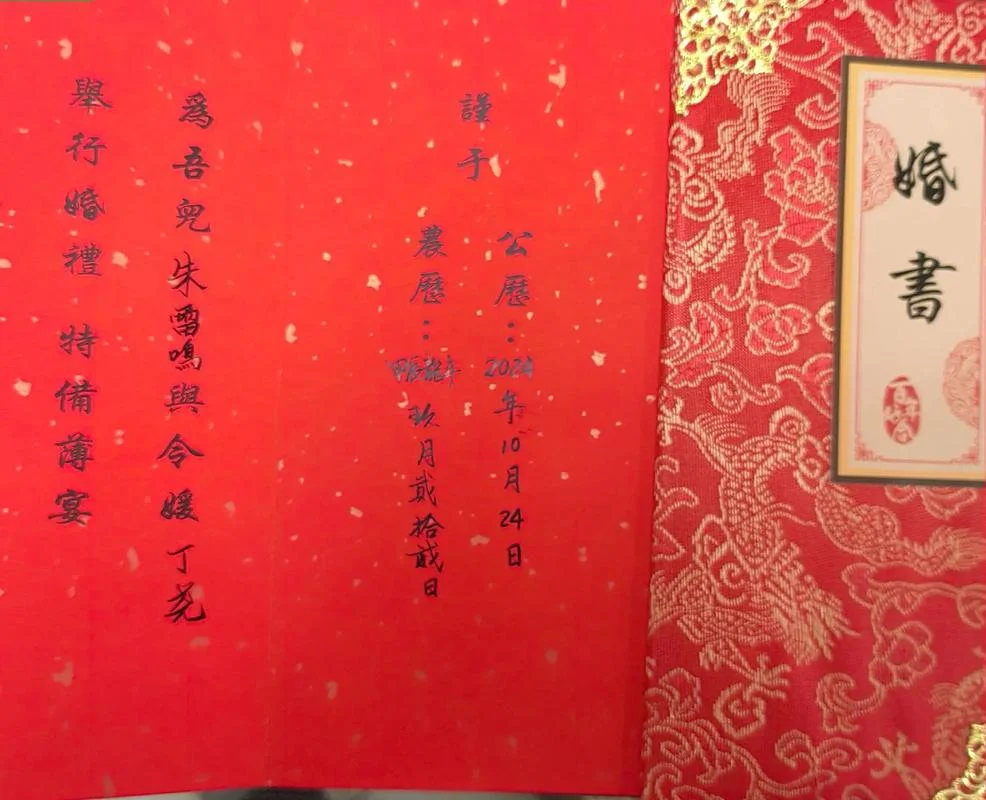 婚書
百年好合
謹于
公歷：2024年10月24日
農歷：甲辰龍年玖月貳拾貳日
爲吾兒朱雷鳴與令媛丁尧
舉行婚禮 特備薄宴